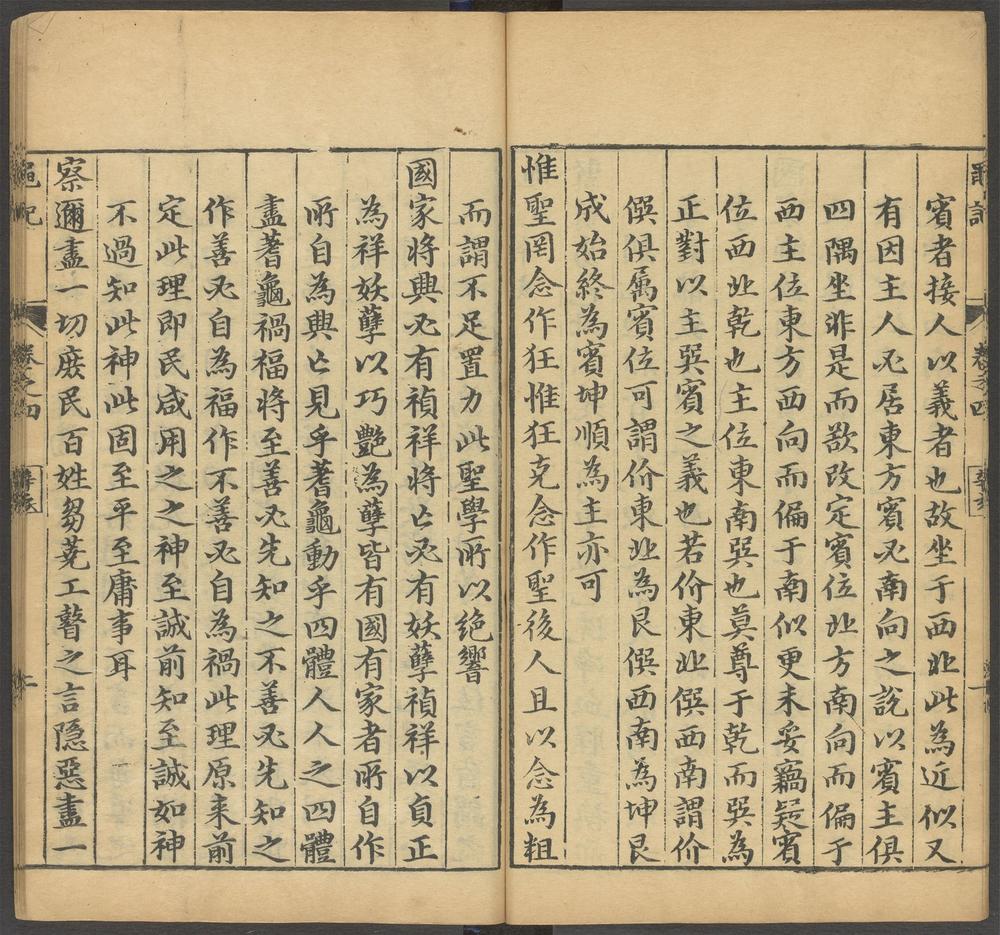 賓者接人以義者也故坐于西北此為近似又
有因主人必居東方賓必南向之說以賓主俱
四隅坐非是而欲改定賓位北方南向而偏于
西主位東方西向而偏于南似更未妥竊疑賓
位西北乾也主位東南巽也莫尊于乾而巽為
正對以主巽賓之義也若介東北僎西南謂介
僎俱属賓位可謂介東北為艮僎西南為坤艮
成始終為賓坤順為主亦可
惟聖罔念作狂惟狂克念作聖後人且以念為粗
而謂不足置力此聖學所以绝響
國家將興必有禎祥將亡必有妖孽禎祥以貞正
為祥妖孽以巧艷為孽皆有國有家者所自作
所自為興亡見乎蓍龜動乎四體人人之四體
盡蓍龜禍福將至善必先知之不善必先知之
作善必自為福作不善必自為禍此理原来前
定此理即民咸用之之神至誠前知至誠如神
不過知此神此固至平至庸事耳
察邇盡一切庶民百姓芻蕘工瞽之言隱惡盡一
卷之四